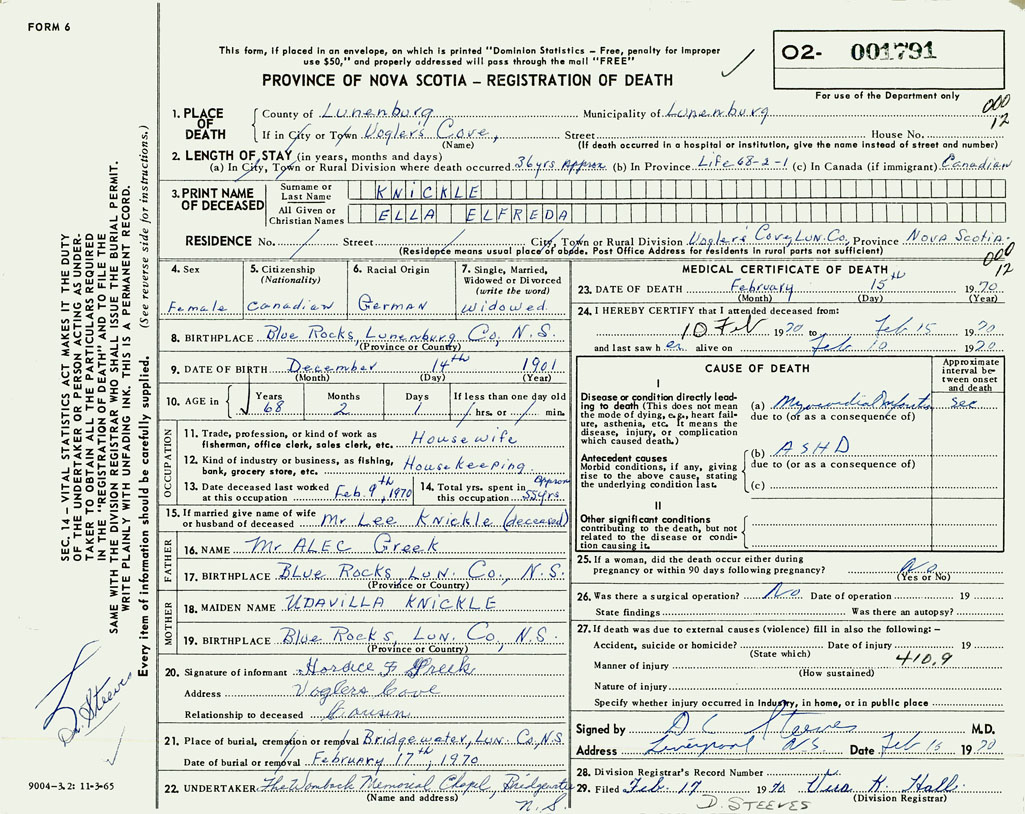 FORM 6
This form, if placed in an envelope, on which is printed "Dominion Statistics – Free, penalty for improper
use $50," and properly addressed will pass through the mail "FREE"
PROVINCE OF NOVA SCOTIA – REGISTRATION OF DEATH
O2- 001791
For use of the Department only
000
12
1. PLACE OF DEATH
County of Lunenburg Municipality of Lunenburg
If in City or Town Vogler's Cove, Street House No.
(Name) (If death occurred in a hospital or institution, give the name instead of street and number)
2. LENGTH OF STAY (in years, months and days)
(a) In City, Town or Rural Division where death occurred 36 yrs Approx (b) In Province Life 68-2-1 (c) In Canada (if immigrant) Canadian
3. PRINT NAME OF DECEASED
Surname or Last Name KNICKLE
All Given or Christian Names ELLA ELFREDA
RESIDENCE No. Street City, Town or Rural Division Vogler's Cove, Lun. Co. Province Nova Scotia.
(Residence means usual place of abode. Post Office Address for residents in rural parts not sufficient)
000
12
4. Sex Female
5. Citizenship (Nationality) Canadian
6. Racial Origin German
7. Single, Married, Widowed or Divorced (write the word) Widowed
8. BIRTHPLACE Blue Rocks, Lunenburg Co, N.S.
(Province or Country)
9. DATE OF BIRTH December 14th 1901
(Month) (Day) (Year)
10. AGE in Years 68 Months 2 Days 1 If less than one day old hrs. or min.
OCCUPATION
11. Trade, profession, or kind of work as fisherman, office clerk, sales clerk, etc. Housewife
12. Kind of industry or business, as fishing, bank, grocery store, etc. Housekeeping.
13. Date deceased last worked at this occupation Feb. 9th, 1970
14. Total yrs. spent in this occupation Approx 55 yrs.
15. If married give name of wife or husband of deceased Mr Lee Knickle (deceased)
FATHER
16. NAME Mr ALEC Greek
17. BIRTHPLACE Blue Rocks, Lun. Co., N.S.
(Province or Country)
MOTHER
18. MAIDEN NAME UDAVILLA KNICKLE
19. BIRTHPLACE Blue Rocks, Lun. Co, N.S.
(Province or Country)
20. Signature of informant Horace F Greek
Address Voglers Cove
Relationship to deceased Cousin
21. Place of burial, cremation or removal Bridgewater, Lun. Co, N.S.
Date of burial or removal February 17th, 1970
22. UNDERTAKER The Womback Memorial Chapel, Bridgewater
N.S.
(Name and address)
MEDICAL CERTIFICATE OF DEATH
23. DATE OF DEATH February 15th 1970
(Month) (Day) (Year)
24. I HEREBY CERTIFY that I attended deceased from:
10 Feb 1970 to Feb 15 1970
and last saw her alive on Feb 10 1970
CAUSE OF DEATH
Approximate interval between onset and death
I
Disease or condition directly leading to death (This does not mean the mode of dying, e.g., heart failure, asthenia, etc. It means the disease, injury, or complication which caused death.)
(a) Myocardial Infarction sec
due to (or as a consequence of)
Antecedent causes
Morbid conditions, if any, giving rise to the above cause, stating the underlying condition last.
(b) ASHD
due to (or as a consequence of)
(c)
II
Other significant conditions contributing to the death, but not related to the disease or condition causing it.
25. If a woman, did the death occur either during pregnancy or within 90 days following pregnancy? No
(Yes or No)
26. Was there a surgical operation? No. Date of operation 19
State findings Was there an autopsy?
27. If death was due to external causes (violence) fill in also the following: –
Accident, suicide or homicide? Date of injury 19
(State which)
410.9
Manner of injury
(How sustained)
Nature of injury
Specify whether injury occurred in Industry, in home, or in public place
Signed by D C Steeves M.D.
Address Liverpool NS Date Feb 15 1970
28. Division Registrar's Record Number
29. Filed Feb. 17 1970. Vera K. Hall.
(Division Registrar)
D. STEEVES
SEC. 14 – VITAL STATISTICS ACT MAKES IT THE DUTY
OF THE UNDERTAKER OR PERSON ACTING AS UNDER-
TAKER TO OBTAIN ALL THE PARTICULARS REQUIRED
IN THE "REGISTRATION OF DEATH" AND TO FILE THE
SAME WITH THE DIVISION REGISTRAR WHO SHALL ISSUE THE BURIAL PERMIT.
WRITE PLAINLY WITH UNFADING INK. THIS IS A PERMANENT RECORD.
Every item of information should be carefully supplied. (See reverse side for instructions.)
Dr. Steeves
9004-3.2: 11-3-65